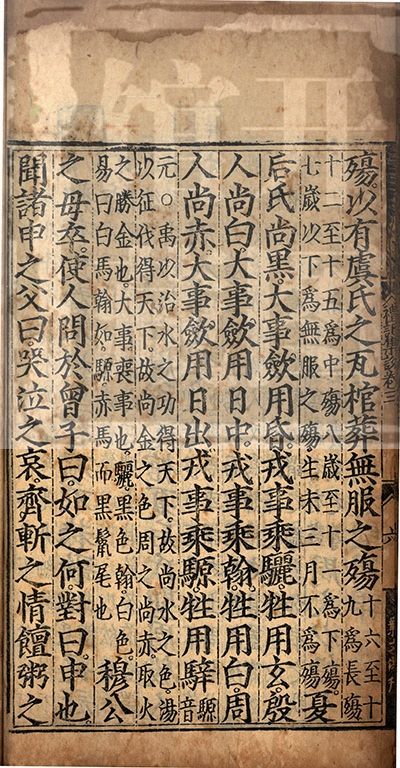 殤。以有虞氏之瓦棺葬無服之殤
十六至十
九爲長殤
十二至十五爲中殤八歲至十一爲下殤。
七歲以下爲無服之殤。生未三月不爲殤
夏
后氏尚黑。大事斂用昏。戎事乘驪。牲用玄。殷
人尚白。大事斂用日中。戎事乘翰。牲用白。周
人尚赤。大事斂用日出。戎事乘騵。牲用騂
騵
音
元。○禹以治水之功得天下。故尚水之色。湯
以征伐得天下。故尚金之色。周之尚赤取火
之勝金也。大事喪事也。驪黑色。翰白色。
易曰白馬翰如騵赤馬而黑鬣尾也
穆公
之母卒。使人問於曾子曰。如之何。對曰。申也
聞諸申之父曰。哭泣之哀。齊斬之情。饘粥之